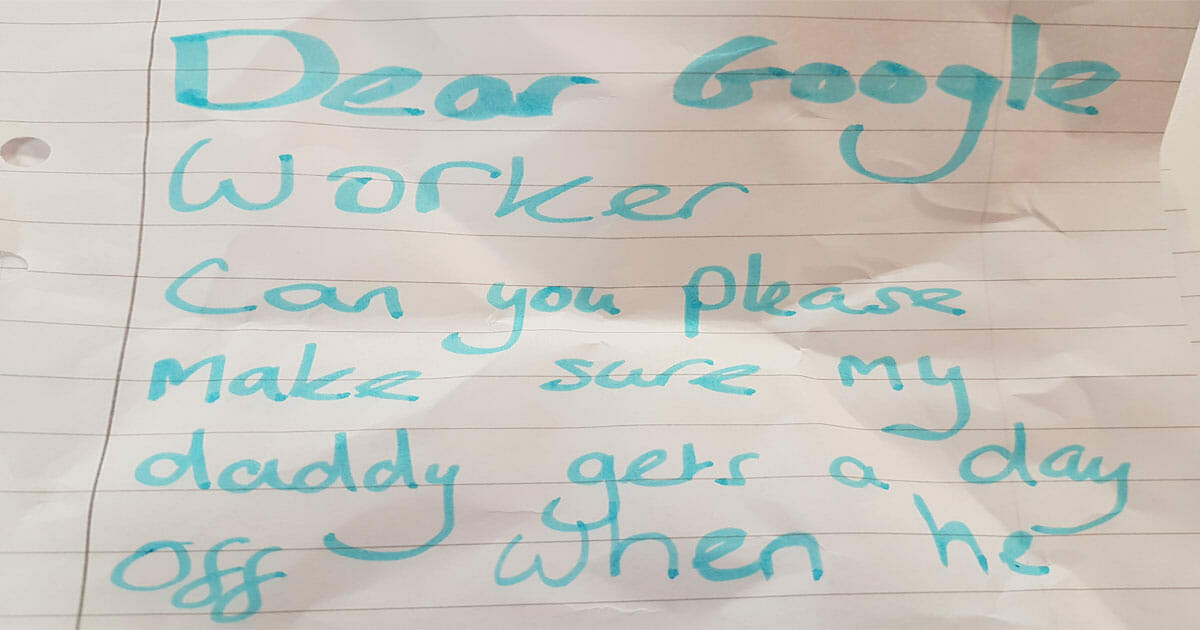 Dear Google
Worker
Can you please
Make sure my
daddy gets a day
off when he